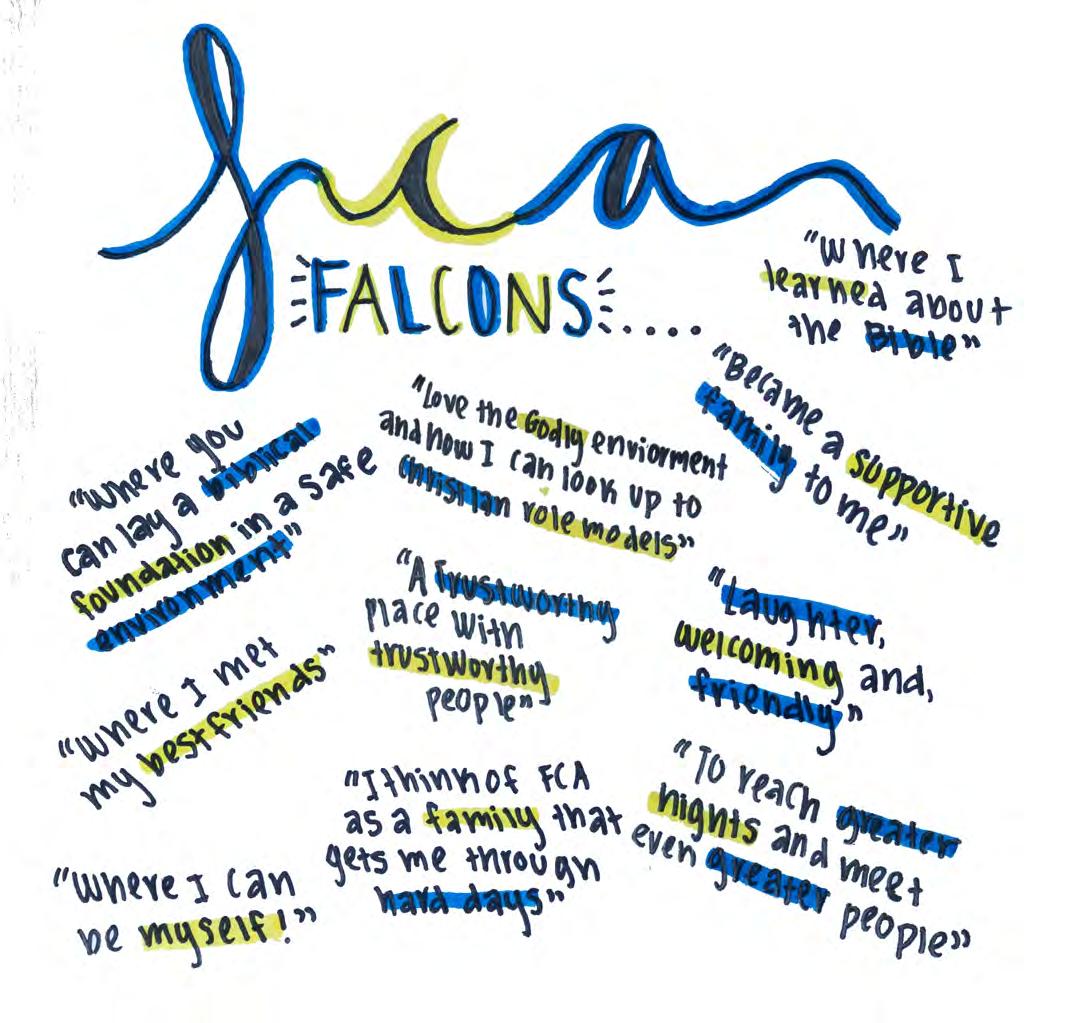 fca
FALCONS....
"Where I
learned about
the Bible"
"Became a supportive
family to me"
"Love the Godly enviorment
and how I can look up to
christian role models"
"Where you
can lay a biblical
foundation in a safe
environment"
"A Trustworthy
place with
trustworthy
people"
"Laughter,
welcoming and,
friendly"
"Where I met
my bestfriends"
"I think of FCA
as a family that
gets me through
hard days"
"To reach greater
hights and meet
even greater people"
"Where I can
be myself!"